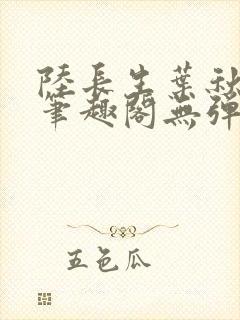 陸長生葉秋
筆趣閣無彈
五色瓜